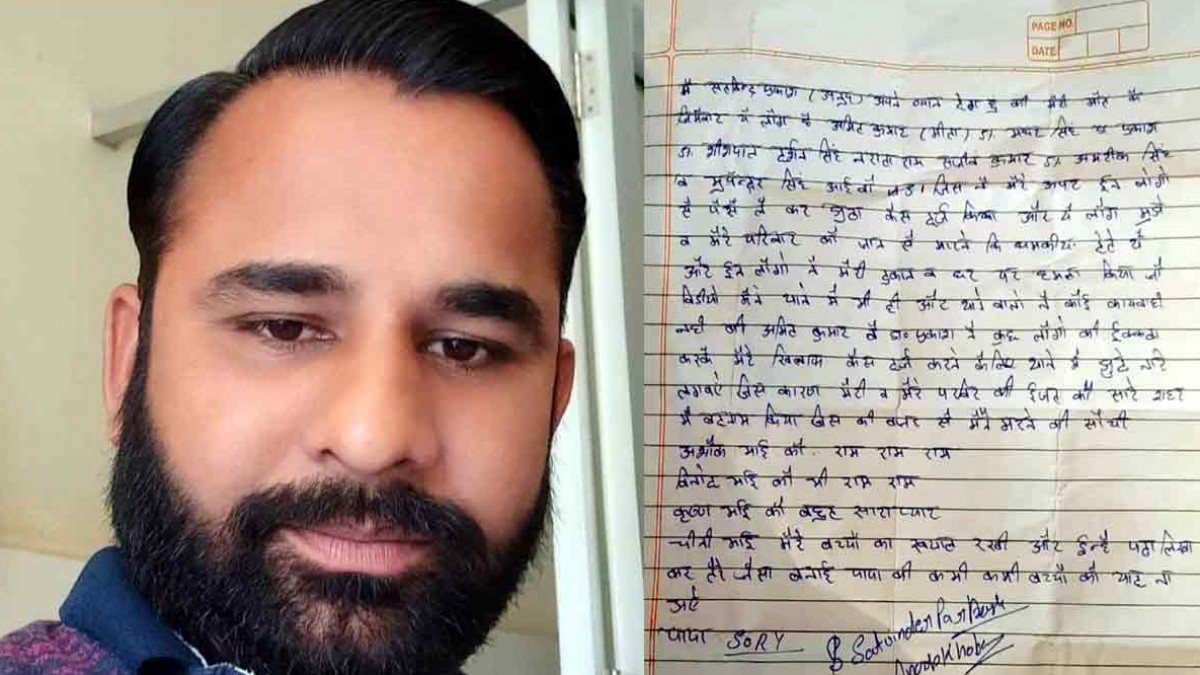 PAGE NO.
DATE
मै सतविन्द्र प्रकाश ( ) अपने ब्यान देता हु की मेरी मौत के
जिमेवार ये लोग है अमित कुमार (मीता) डा. सिंह प्रकाश
डा. शीशपाल दर्शन सिंह नराता राम कुमार डा. अमरीक सिंह
व भुपेन्द्र सिंह आई जिस ने मेरे उपर ईन लोगो
से पैसै ले कर झुठा केस दर्ज किया और ये लोग मुझे
व मेरे परिवार को जान से मारने कि धमकीया देते थे
और ईन लोगो ने मेरी दुकान व घर पर हमला किया जो
विडीयो मैने थाने मे भी दी और थाने वालो ने कोई कायवाही
नही की अमित कुमार व डा० प्रकाश ने कुछ लोगो को ईक्कठा
करके मेरे खिलाफ केस दर्ज करने केलिए थाने मे झुठे नारे
लगवाऐ जिस कारण मेरी व मेरे परवार की ईजत को सारे शहर
मे बदनाम किया जिस की वजह से मैने मरने की सोची
अशोक भाई को. राम राम राम
विनोद भाई को भी राम राम
कृष्ण भाई को बहुह सारा प्यार
चीनी भाई मेरे बच्चो का ख्याल रखी और ईन्है पढा लिखा
कर तेरे जैसा बनाई पापा की कमी कमी बच्चो को याद ना
आऐ
पापा SORY Satvinder Parkash